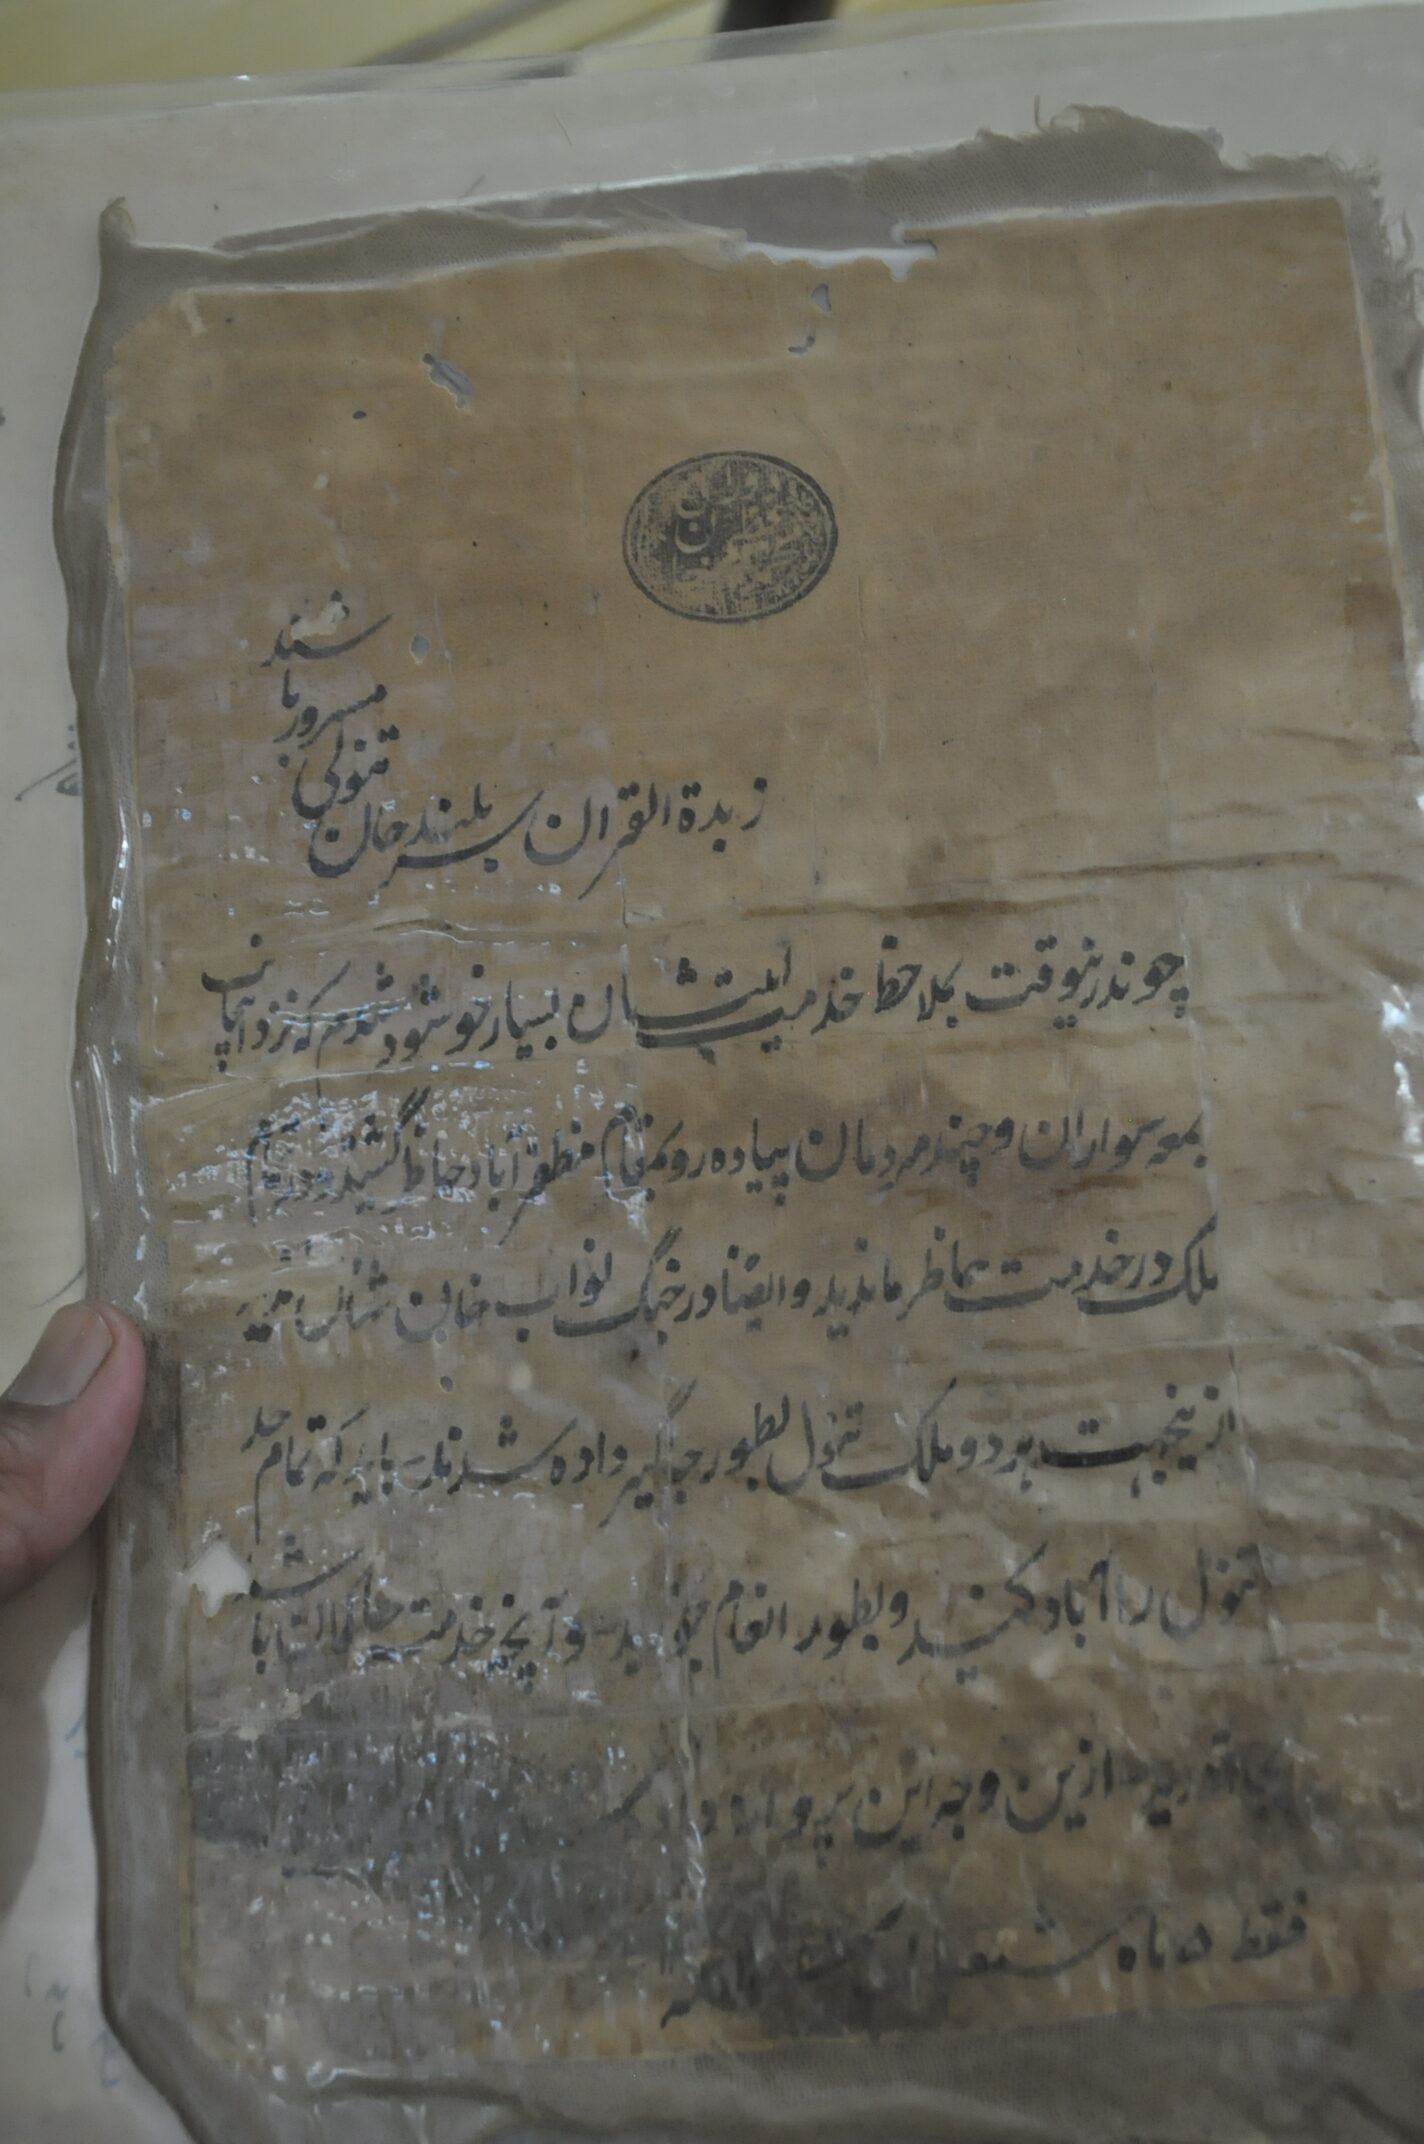 زبدة القران سربلند خان
تنولی
مسرور با
شند
چوندرینوقت بملاحظ خدمت ایشان بسیار خوشنود شدم که نزد اینجانب
بمعه سواران و چند مردمان پیاده رو بمقام مظفرآباد حاظر گشیدند و در تمام
ملک در خدمت حاظر ماندید و ایضا در جنگ نواب خان شامل
ازینجهت هر دو ملک تنول بطور جاگیر داده شدند باید که تمام حد
تنول را آباد کنید و بطور انعام بخورید و آنچه خدمت حاکمان باشد
بجا آورید ازین وجه این پروانه داده
فقط ۵ ماه